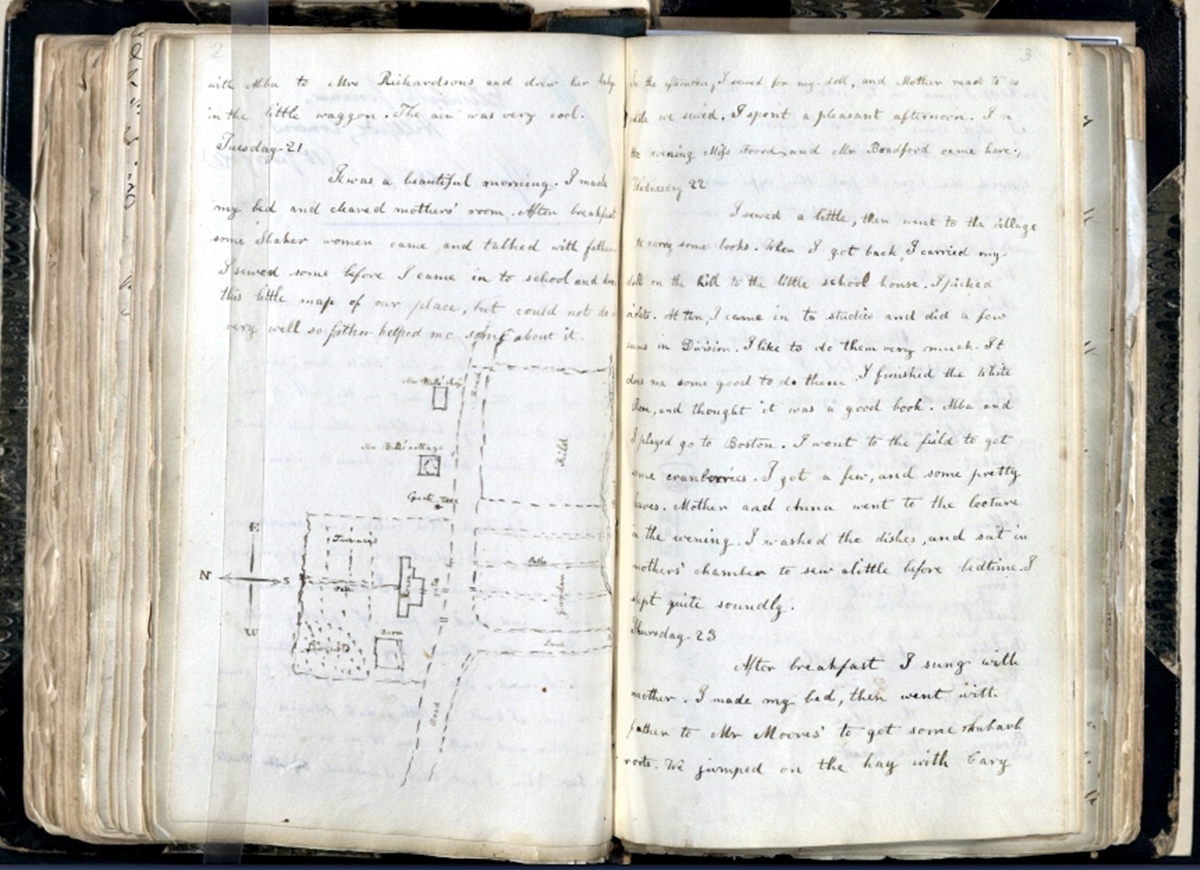 2
with Abba to Mrs Richardsons and drew her baby
in the little waggon. The air was very cool.
Tuesday 21
It was a beautiful morning. I made
my bed and cleared mothers' room. After breakfast
some Shaker women came and talked with father
I sewed some before I came in to school and
this little map of our place, but could not do
very well so father helped me some about it.
Field
Mr Bull's cottage
E
N
S
W
Paths
Garden
Barn
Orchard
Road
3
In the afternoon, I sewed for my doll, and Mother read to us
while we sewed. I spent a pleasant afternoon. In
the evening Miss Foord and Mr Bradford came here.
Wednesday 22
I sewed a little, then went to the village
to carry some books. When I got back I carried my
doll on the hill to the little school house. I picked
violets. At ten, I came in to studies and did a few
sums in Division. I like to do them very much. It
does me some good to do them. I finished the White
Rose, and thought it was a good book. Abba and
I played go to Boston. I went to the field to get
some cranberries. I got a few, and some pretty
leaves. Mother and Anna went to the lecture
in the evening. I washed the dishes, and sat in
mothers' chamber to sew alittle before bedtime. I
slept quite soundly.
Thursday 23
After breakfast I sung with
mother. I made my bed, then went with
father to Mr Moores' to get some rhubarb
roots. We jumped on the hay with Cary